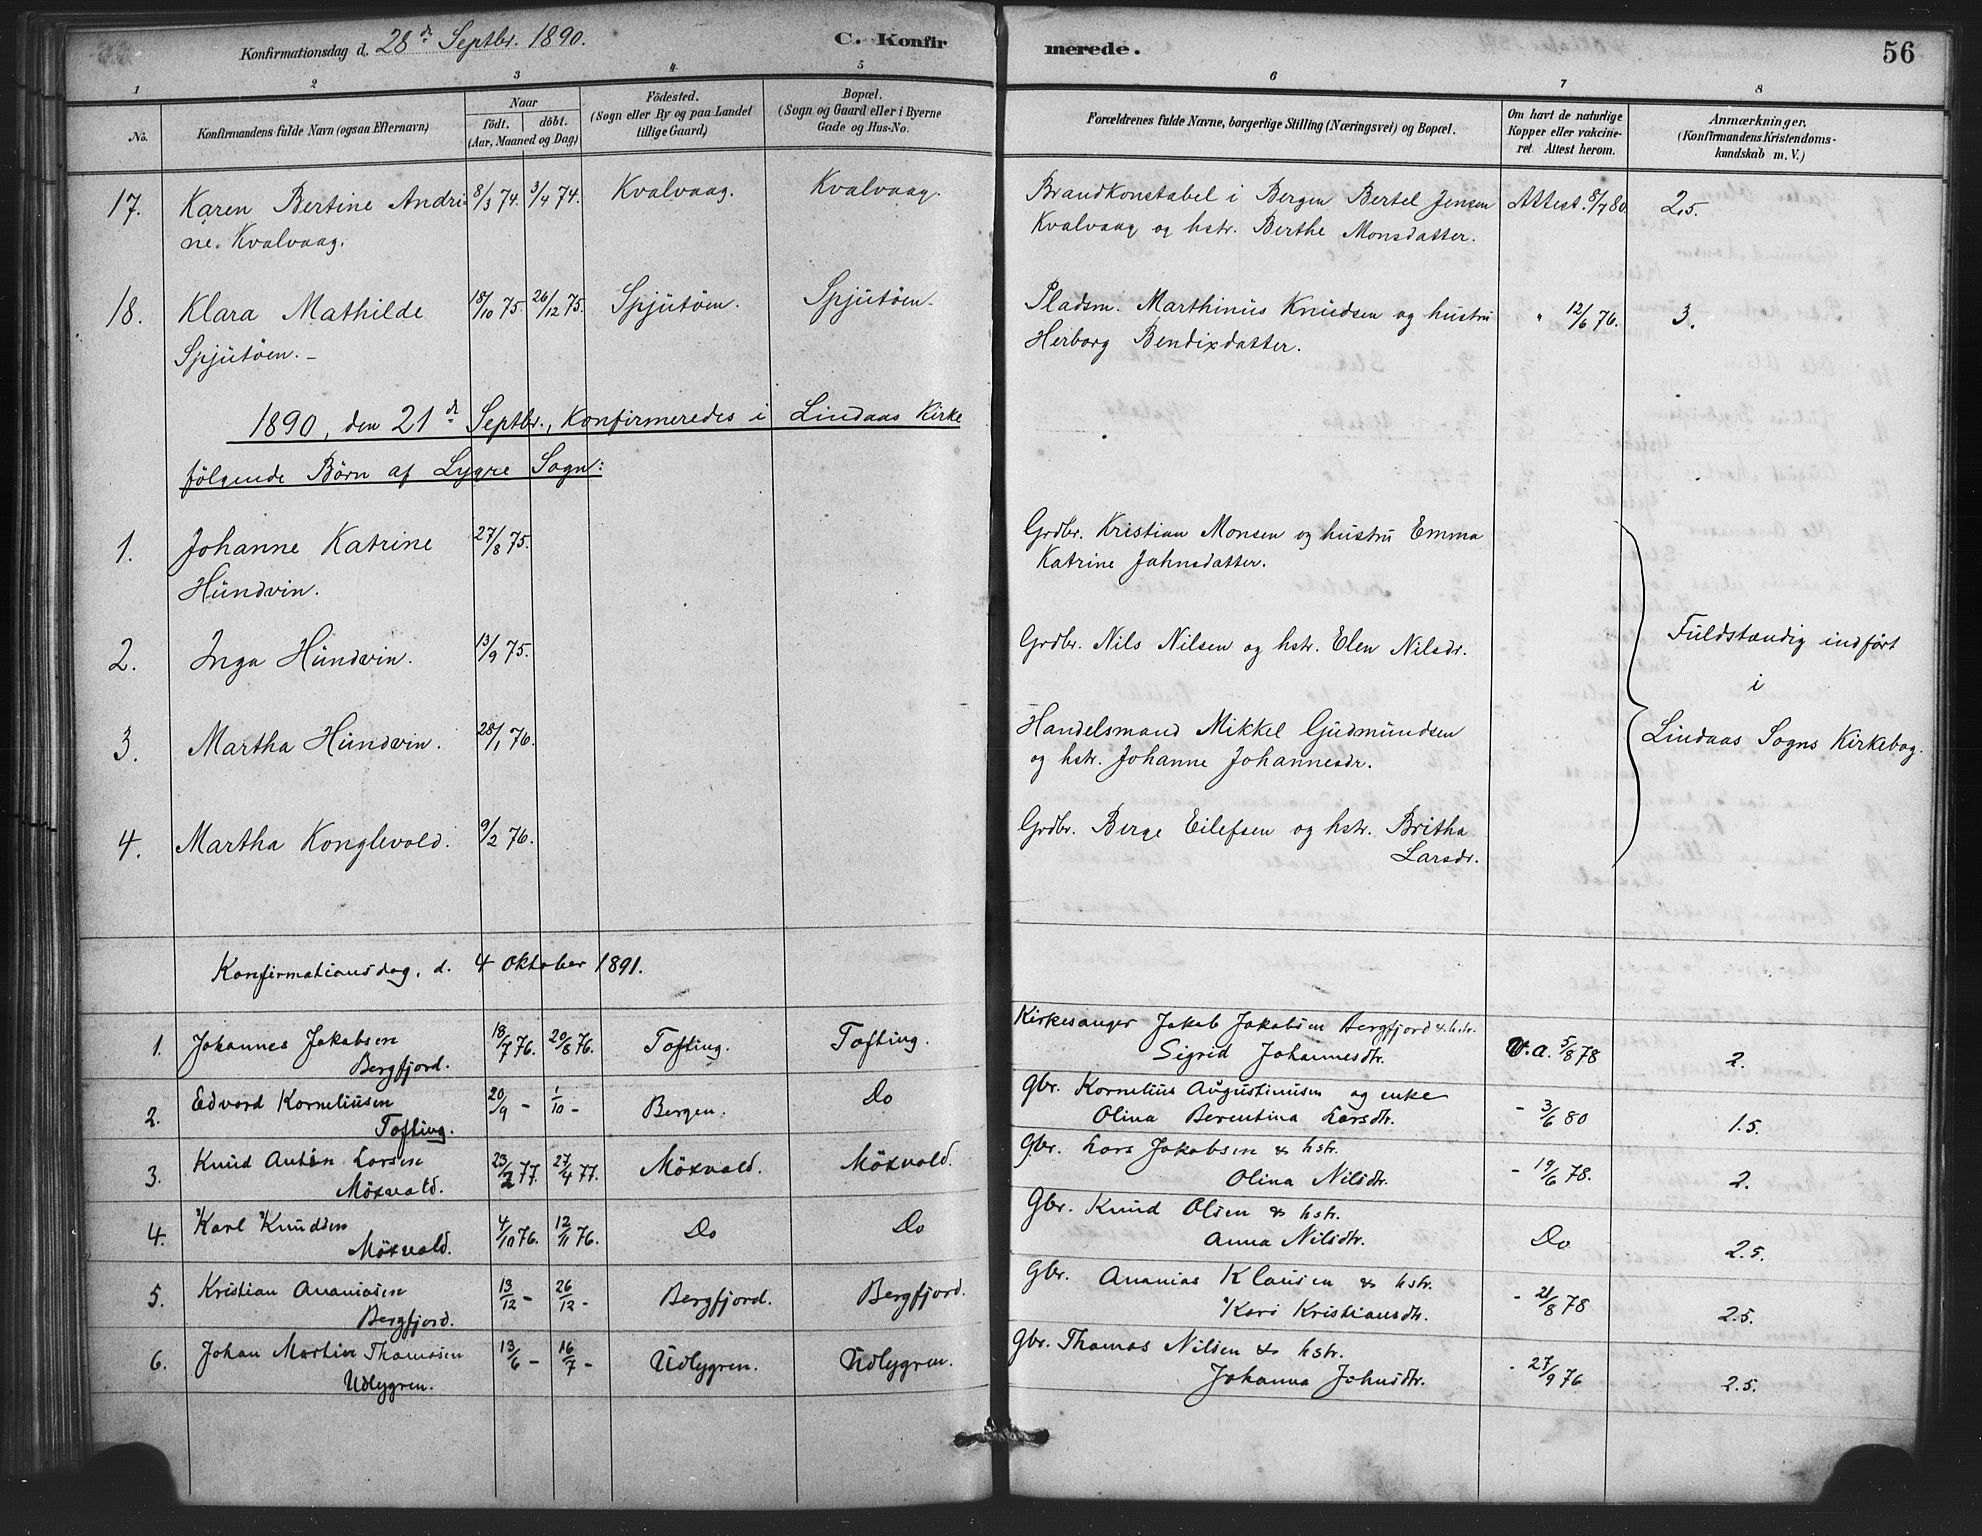 Konfirmationsdag d. 28de Septbr. 1890.
C. Konfirmerede.
56
1 2 3 4 5 6 7 8
No.
Konfirmandens fulde Navn (ogsaa Efternavn)
Naar
födt. döbt.
(Aar, Maaned og Dag)
Födested.
(Sogn eller By og paa Landet
tillige Gaard)
Bopæl.
(Sogn og Gaard eller i Byerne
Gade og Hus-No.
Forældrenes fulde Navne, borgerlige Stilling (Næringsvei) og Bopæl.
Om havt de naturlige
Kopper eller vakcine-
ret. Attest herom.
Anmærkninger,
(Konfirmandens Kristendoms-
kundskab m. V.)
17. Karen Bertine Andri- 8/3 74. 3/4 74. Kvalvaag. Kvalvaag. Brandkonstabel i Bergen Bertel Jensen Attest. 8/7 80. 2,5.
ne. Kvalvaag. Kvalvaag og hstr. Berthe Monsdatter.
18. Klara Mathilde 18/10 75. 26/12 75. Spjutöen. Spjutöen. Pladsm. Marthinus Knudsen og hustru " 12/6 76. 3.
Spjutöen. – Herborg Bendixdatter.
1890, den 21de Septbr., Konfirmeredes i Lindaas Kirke
følgende Børn af Lygre Sogn:
1. Johanne Katrine 27/8 75. Grdbr. Kristian Monsen og hustru Emma
Hundvin. Katrine Jahnsdatter.
2. Inga Hundvin. 13/9 75. Grdbr. Nils Nilsen og hstr. Elen Nilsdr.
Fuldstændig indført
i
Lindaas Sogns Kirkebog.
3. Martha Hundvin. 28/1 76. Handelsmand Mikkel Gjudmundsen
og hstr. Johanne Johannesdr.
4. Martha Konglevold. 9/2 76. Grdbr. Berge Eilefsen og hstr. Britha
Larsdr.
Konfirmationsdag. d. 4 Oktober 1891.
1. Johannes Jakobsen 18/7 76. 20/8 76. Tofting. Tofting. Kirkesanger Jakob Jakobsen Bergfjord & hstr. V.a. 5/8 78 2.
Bergfjord. Sigrid Johannesdtr.
2. Edvard Korneliusen 20/9 – 1/10 – Bergen. Do Gbr. Kornelius Augustinusen og enke – 3/6 80 1.5.
Tofting. Olina Berentina Larsdtr.
3. Knud Anton Larsen 23/2 77. 27/4 77. Möxvald. Möxvold. Gbr. Lars Jakobsen & hstr. – 19/6 78. 2.
Möxvald. Olina Nilsdtr.
4. Karl Knudsen 4/10 76. 12/11 76. Do Do Gbr. Knud Olsen & hstr. Do 2.5.
Möxvald. Anna Nilsdtr.
5. Kristian Ananiasen 13/12 – 26/12 – Bergfjord. Bergfjord. Gbr. Ananias Klausen & hstr. – 21/8 78 2.5.
Bergfjord. Kari Kristiansdtr.
6. Johan Martin Thomasen 13/6 – 16/7 – Udlygren. Udlygren. Gbr. Thomas Nilsen & hstr. – 27/9 76 2.5.
Udlygren. Johanna Johnsdtr.